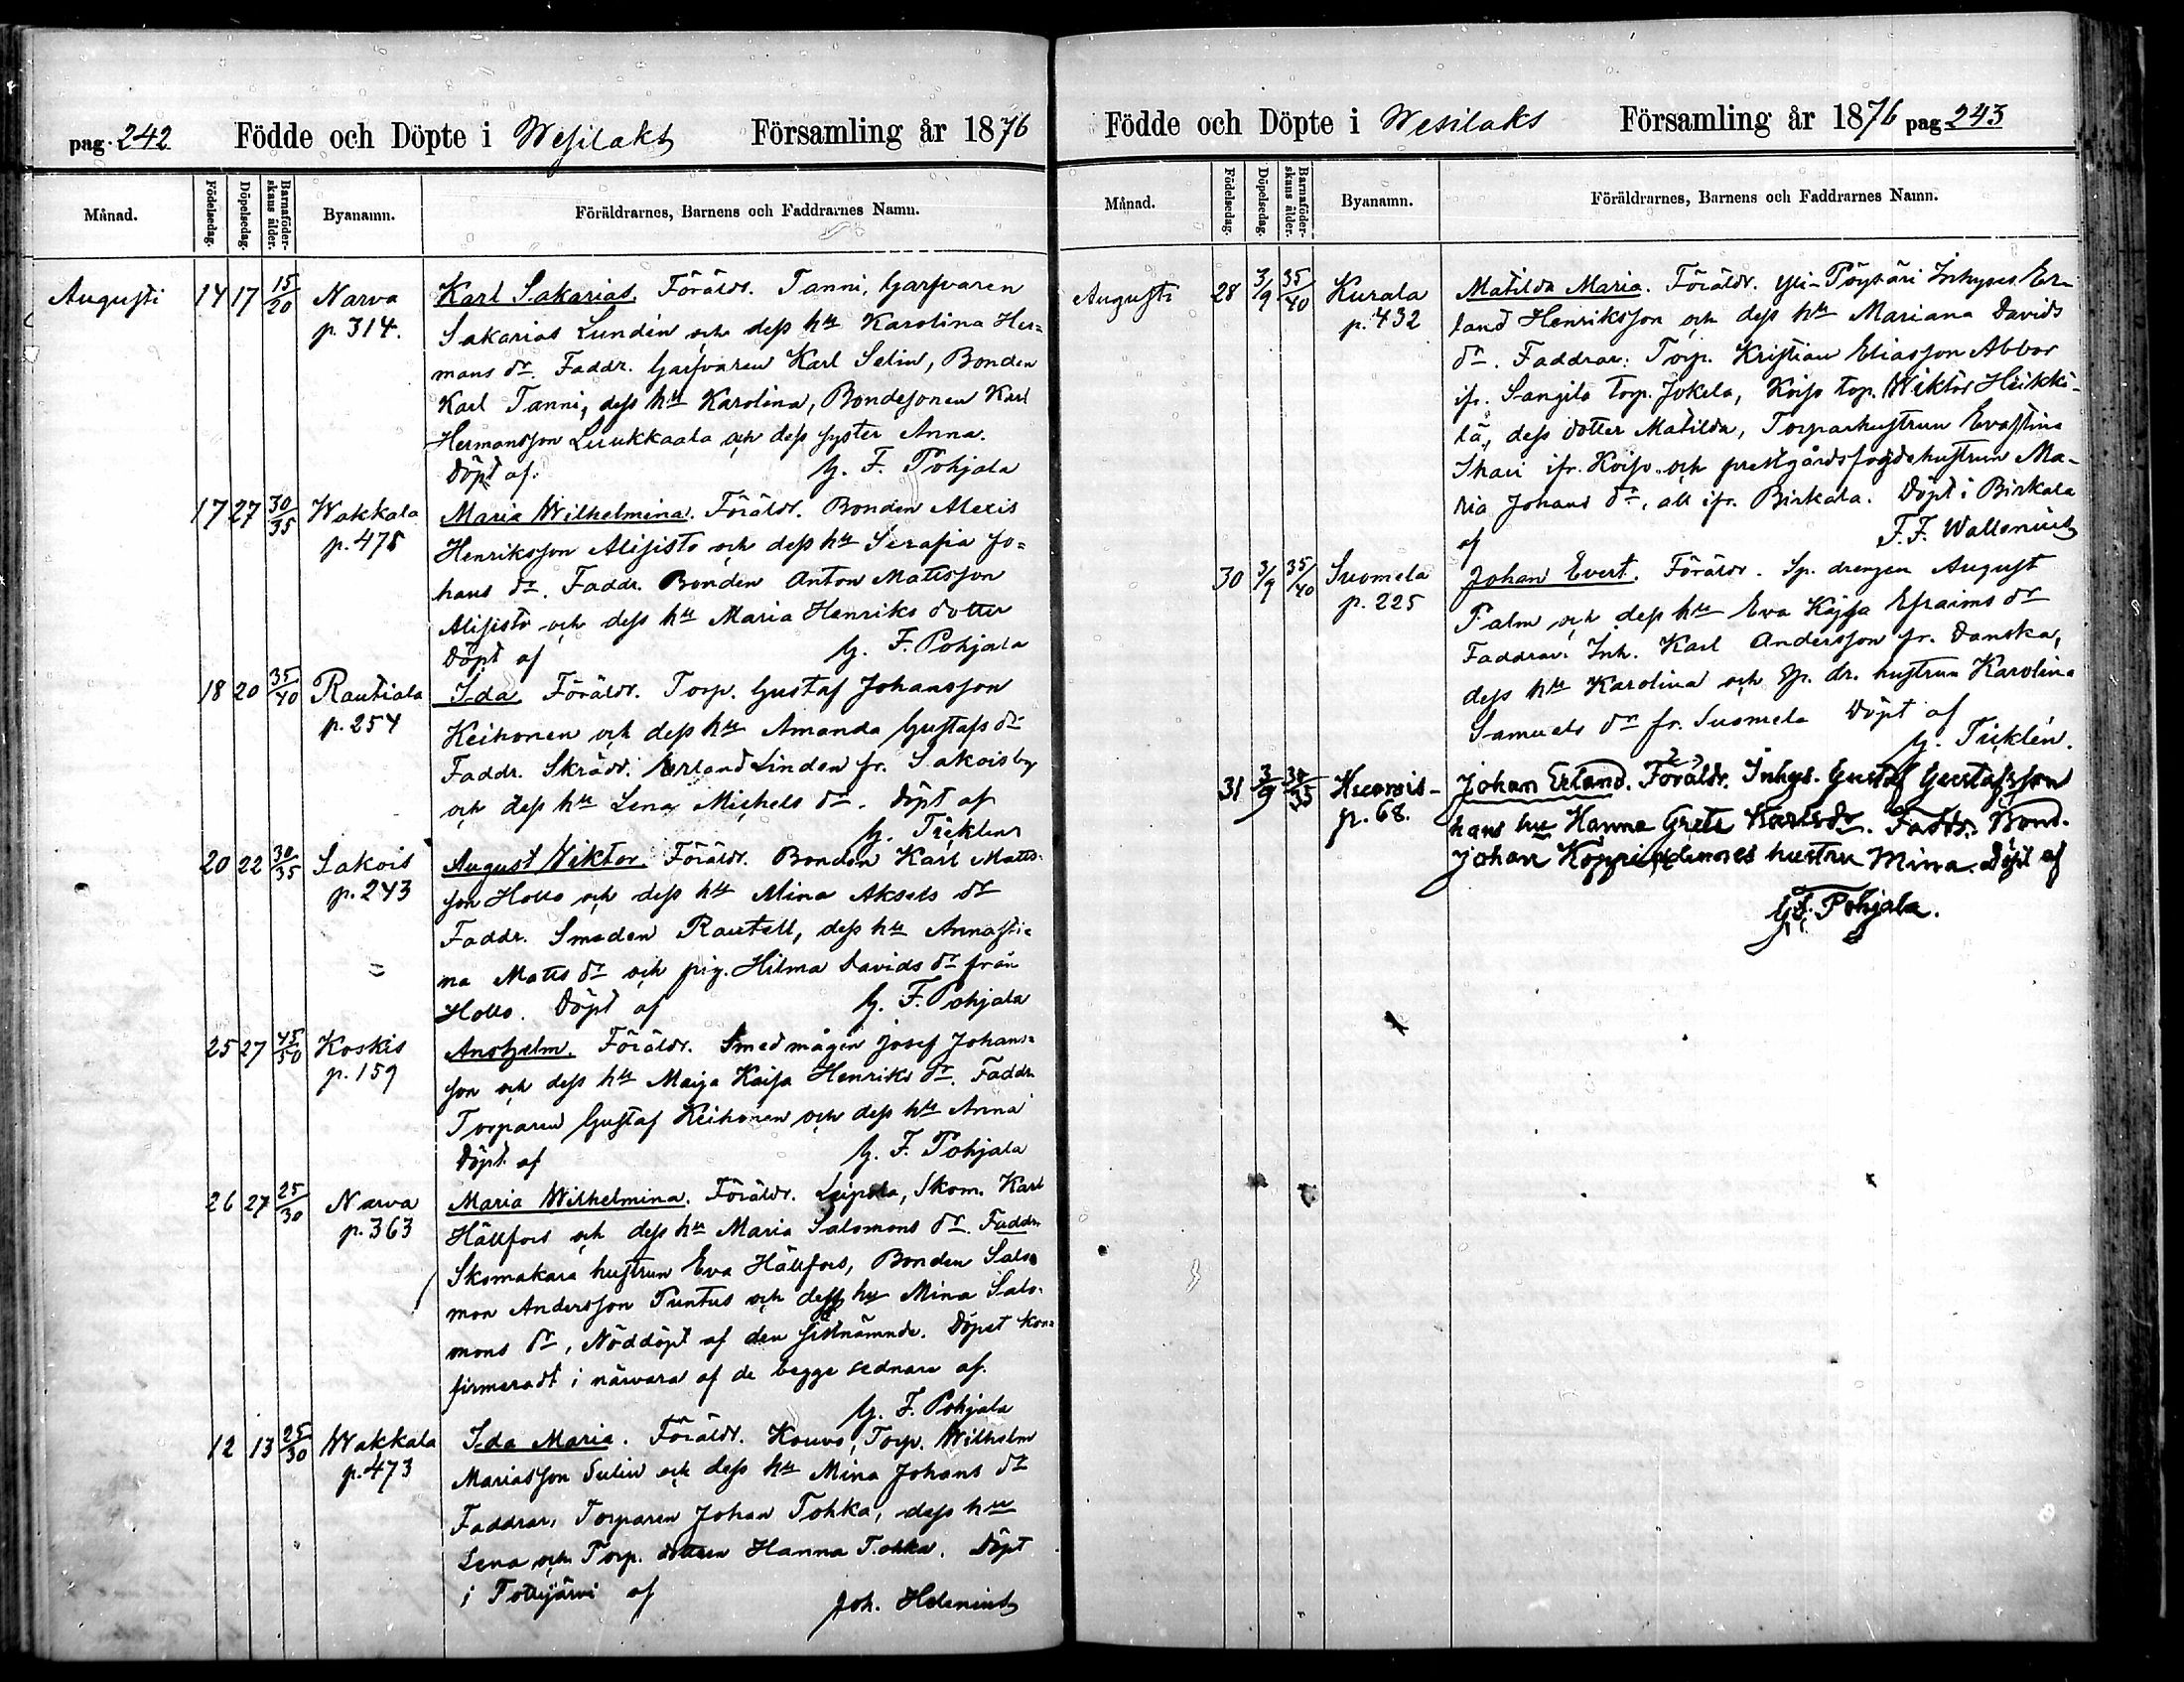 pag. 242 Födde och Döpte i Wesilaks Församling år 1876
Månad. Födelsedag. Döpelsedag. Barnaföderskans ålder. Byanamn. Föräldrarnes, Barnens och Faddrarnes Namn.
Augusti 14 17 15/20 Narva Karl Sakarias. Föräldr. Tanni, Garfvaren
p. 314. Sakarias Lundén och dess hu Karolina Her=
mans dr. Faddr. Garfvaren Karl Selin, Bonden
Karl Tanni, dess hu Karolina, Bondesonen Karl
Hermansson Luukkaala och dess syster Anna.
Döpt af. G. F. Pohjala
17 27 30/35 Wakkala Maria Wilhelmina. Föräldr. Bonden Alexis
p. 478 Henriksson Alisisto och dess hu Serafia Jo=
hans dr. Faddr. Bonden Anton Mattsson
Alisisto och dess hu Maria Henriks dotter
Döpt af G. F. Pohjala
18 20 35/40 Rautiala Ida. Föräldr. Torp. Gustaf Johansson
p. 254 Keihonen och dess hu Amanda Gustafs dr
Faddr. Skrädd. Erland Linden fr. Sakoisby
och dess hu Lena Michels dr. Döpt af
G. Ticklén
20 22 30/35 Sakois August Wiktor. Föräldr. Bonden Karl Matts-
p. 243 son Hollo och dess hu Mina Aksels dr
Faddr. Smeden Rautell, dess hu Annasti=
na Matts dr och pig. Hilma Davids dr från
Hollo. Döpt af G. F. Pohjala
25 27 45/50 Koskis Anshelm. Föräldr. Smedmågen Josef Johans=
p. 159 son och dess hu Maija Kaisa Henriks dr. Faddr.
Torparen Gustaf Keihonen och dess hu Anna
Döpt af G. F. Pohjala
26 27 25/30 Narva Maria Wilhelmina. Föräldr. Leipola, Skom. Karl
p. 363 Hällfors och dess hu Maria Salomons dr. Faddr.
Skomakare hustrun Eva Hällfors, Bonden Salo
mon Andersson Puntus och dess hu Mina Salo-
mons dr, Nöddöpt af den sistnämnde. Döpet kon=
firmeradt i närvara af de begge sednare af.
G. F. Pohjala
12 13 25/30 Wakkala Ida Maria. Föräldr. Kouvo, Torp. Wilhelm
p. 473 Mariasson Sulin och dess hu Mina Johans dr
Faddrar, Torparen Johan Tohka, dess hu
Lena och Torp. dottren Hanna Tohka. Döpt
i Tottijärvi af Joh. Helenius
Födde och Döpte i Wesilaks Församling år 1876 pag 243
Månad. Födelsedag. Döpelsedag. Barnaföderskans ålder. Byanamn. Föräldrarnes, Barnens och Faddrarnes Namn.
Augusti 28 3/9 35/40 Kurala Matilda Maria. Föräldr. Yli-Pöyhäri Inhyses Er-
p. 432 land Henriksson och dess hu Mariana Davids
dr. Faddrar: Torp. Kristian Eliasson Abbor
ifr. Sangila torp. Jokela, Koiso top. Wiktor Heikki-
lä, dess dotter Matilda, Torparhustrun Evastina
ifr. Koiso och prestgårdsfogdehustrun Ma-
ria Johans dr, all ifr. Birkala. Döpt i Birkala
af F. F. Wallenius
30 3/9 35/40 Suomela Johan Evert. Föräldr. Sp. drengen August
p. 225 Palm och dess hu Eva Kajsa Efraims dr
Faddrar. Inh. Karl Andersson fr. Danska,
dess hu Karolina och Sp. dr. hustrun Karolina
Samuels dr fr. Suomela Döpt af
G. Ticklén.
31 3/9 30/35 Huomis- Johan Erland. Föräldr. Inhys. Gustaf Gustafsson
p. 68. hans hu Hanna Greta Karlsdr. Faddr. Bond.
Johan hustru Mina. Döpt af
G. F. Pohjala.